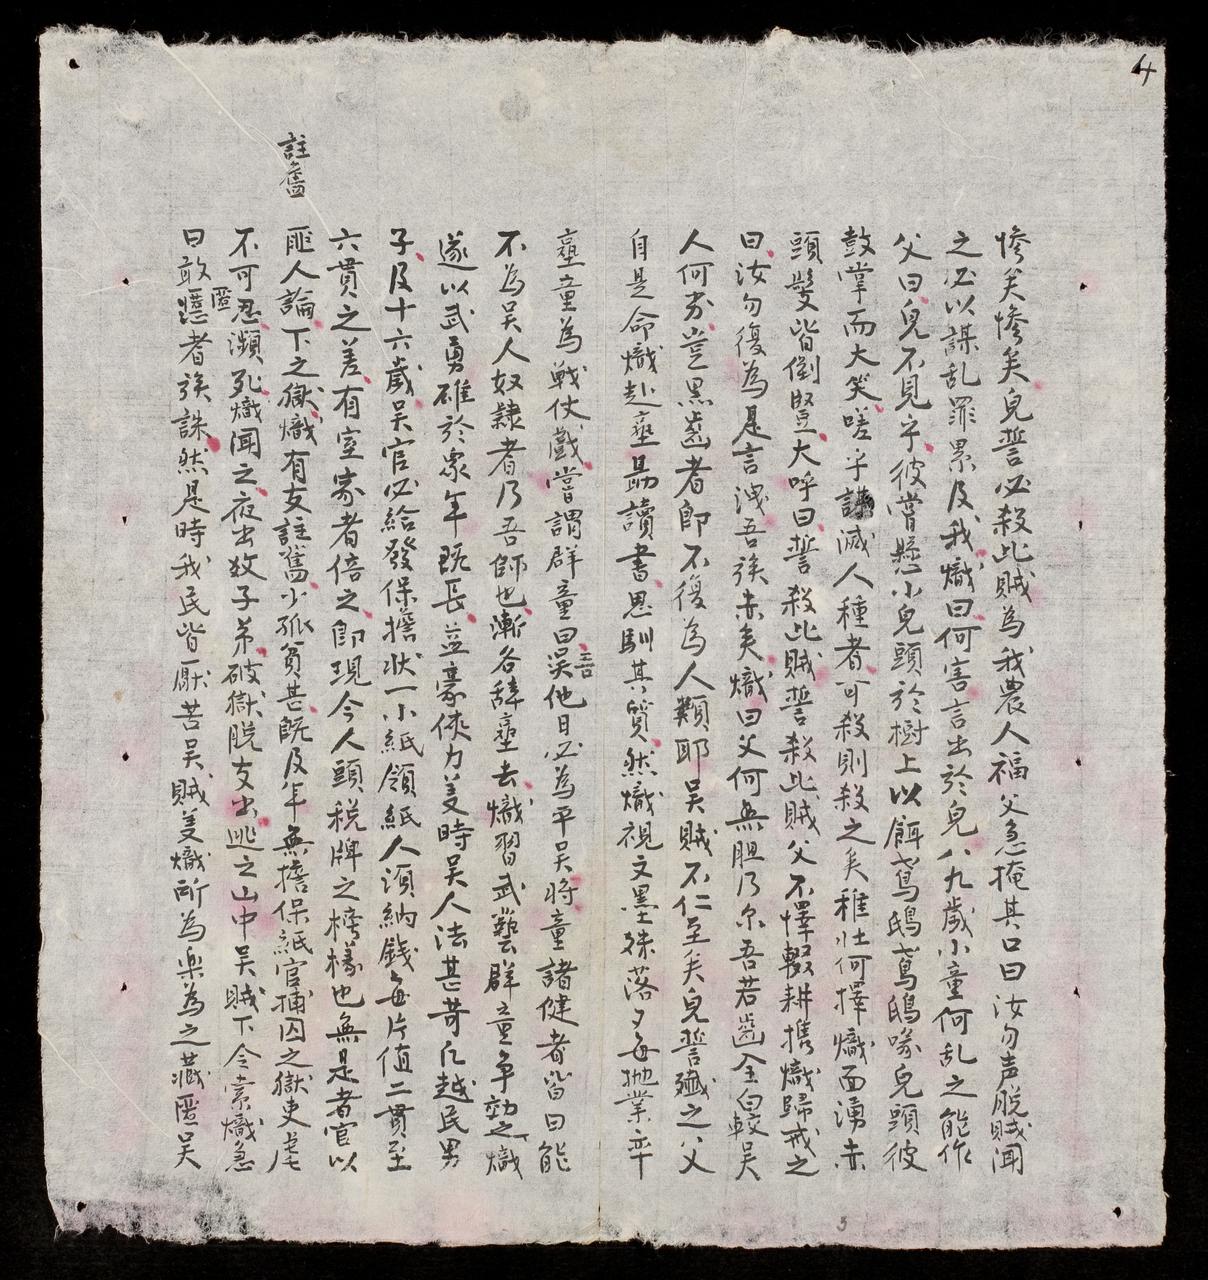 4
惨矣惨矣兒誓必殺此賊為我農人福父急掩其口曰汝勿声脱賊聞
之必以謀乱罪累及我熾曰何害言出於兒八九歲小童何乱之能作
父曰兒不見乎彼嘗懸小兒頭於樹上以餌鳶鴟鳶鴟喙兒頭彼
鼓掌而大笑嗟乎滅人種者可殺則殺之矣稚壯何擇熾面湧赤
頭髮皆倒竪大呼曰誓殺此賊誓殺此賊父不懌輟耕携熾歸戒之
曰汝勿復為是言洩吾族赤矣熾曰父何無胆乃尔吾若齒全白較吴
人何劣豈黒齒者即不復為人類耶吴賊不仁至矣兒誓殱之父
自是命熾赴塾勗讀書思馴其質然熾視文墨殊落々每抛業率
塾童為戦仗戲嘗謂群童曰吾他日必為平吴將童諸健者皆曰能
不為吴人奴隸者乃吾師也漸各辞塾去熾習武藝群童争効之熾
遂以武勇雄於眾年既長益豪俠力美時吴人法甚苛凡越民男
子及十六歲吴官必給發保擔狀一小紙領紙人須納錢每片值二貫至
六貫之差有室家者倍之即現今人頭税牌之榜樣也無是者官以
註舊
匪人論下之獄熾有友註舊少孤貧甚既及年無擔保紙官捕囚之獄吏虐
不可忍瀕死熾聞之夜出数子弟破獄脱友出逃之山中吴賊下令索熾急
匿
曰敢慝者族誅然是時我民皆厭苦吴賊羡熾所為樂為之藏匿吴
3